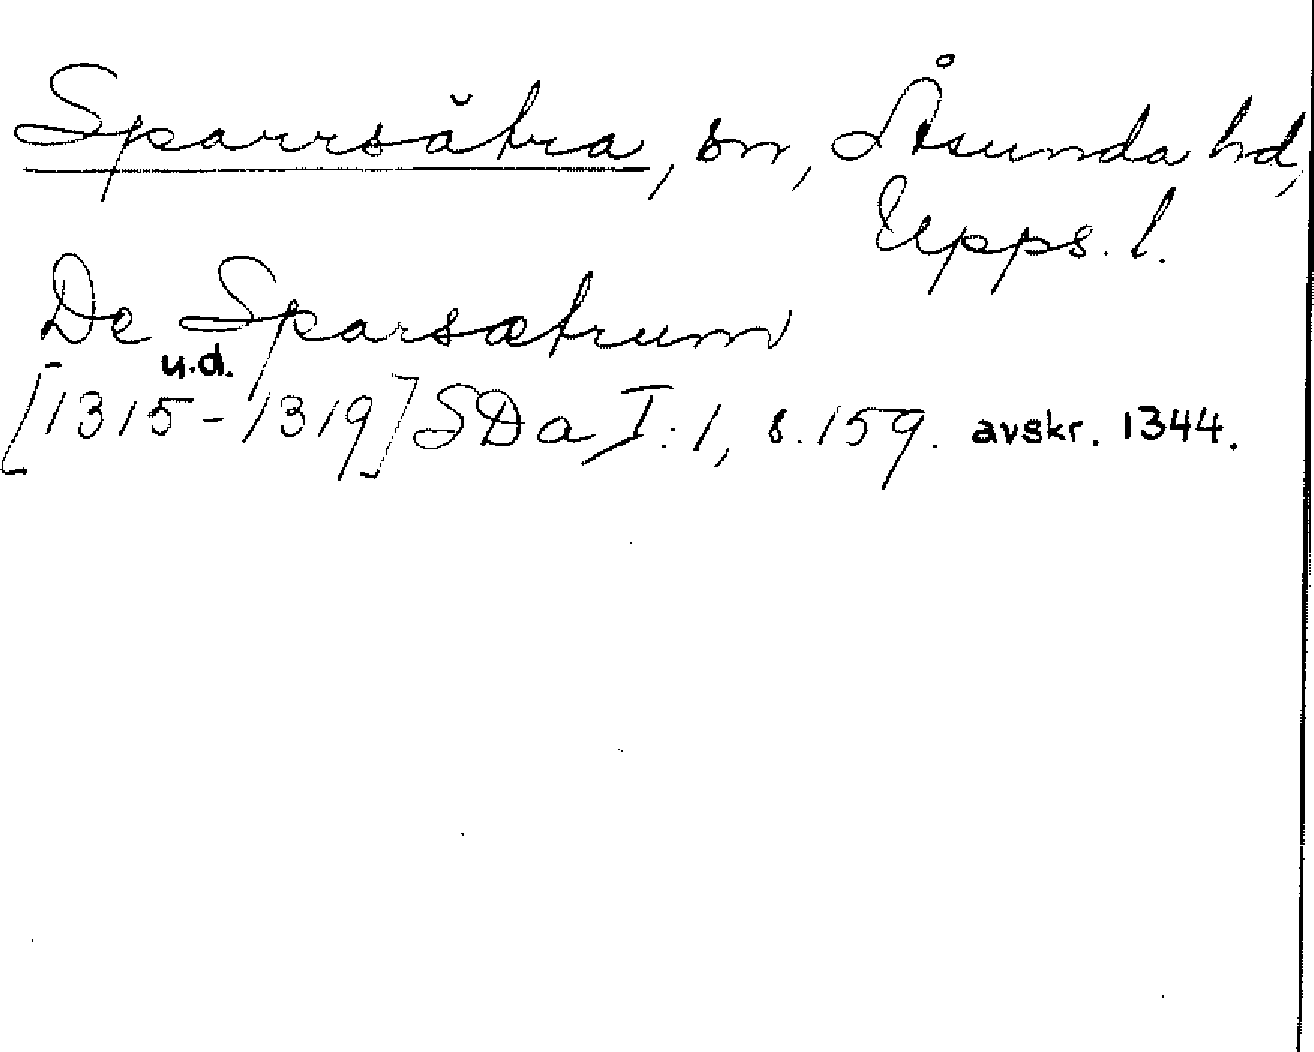 Sparrsätra, sn, Åsunda hd,
Upps. l.
De Sparsætrum
u.d.
[1315-1319] SDa I:1, s. 159. avskr. 1344.